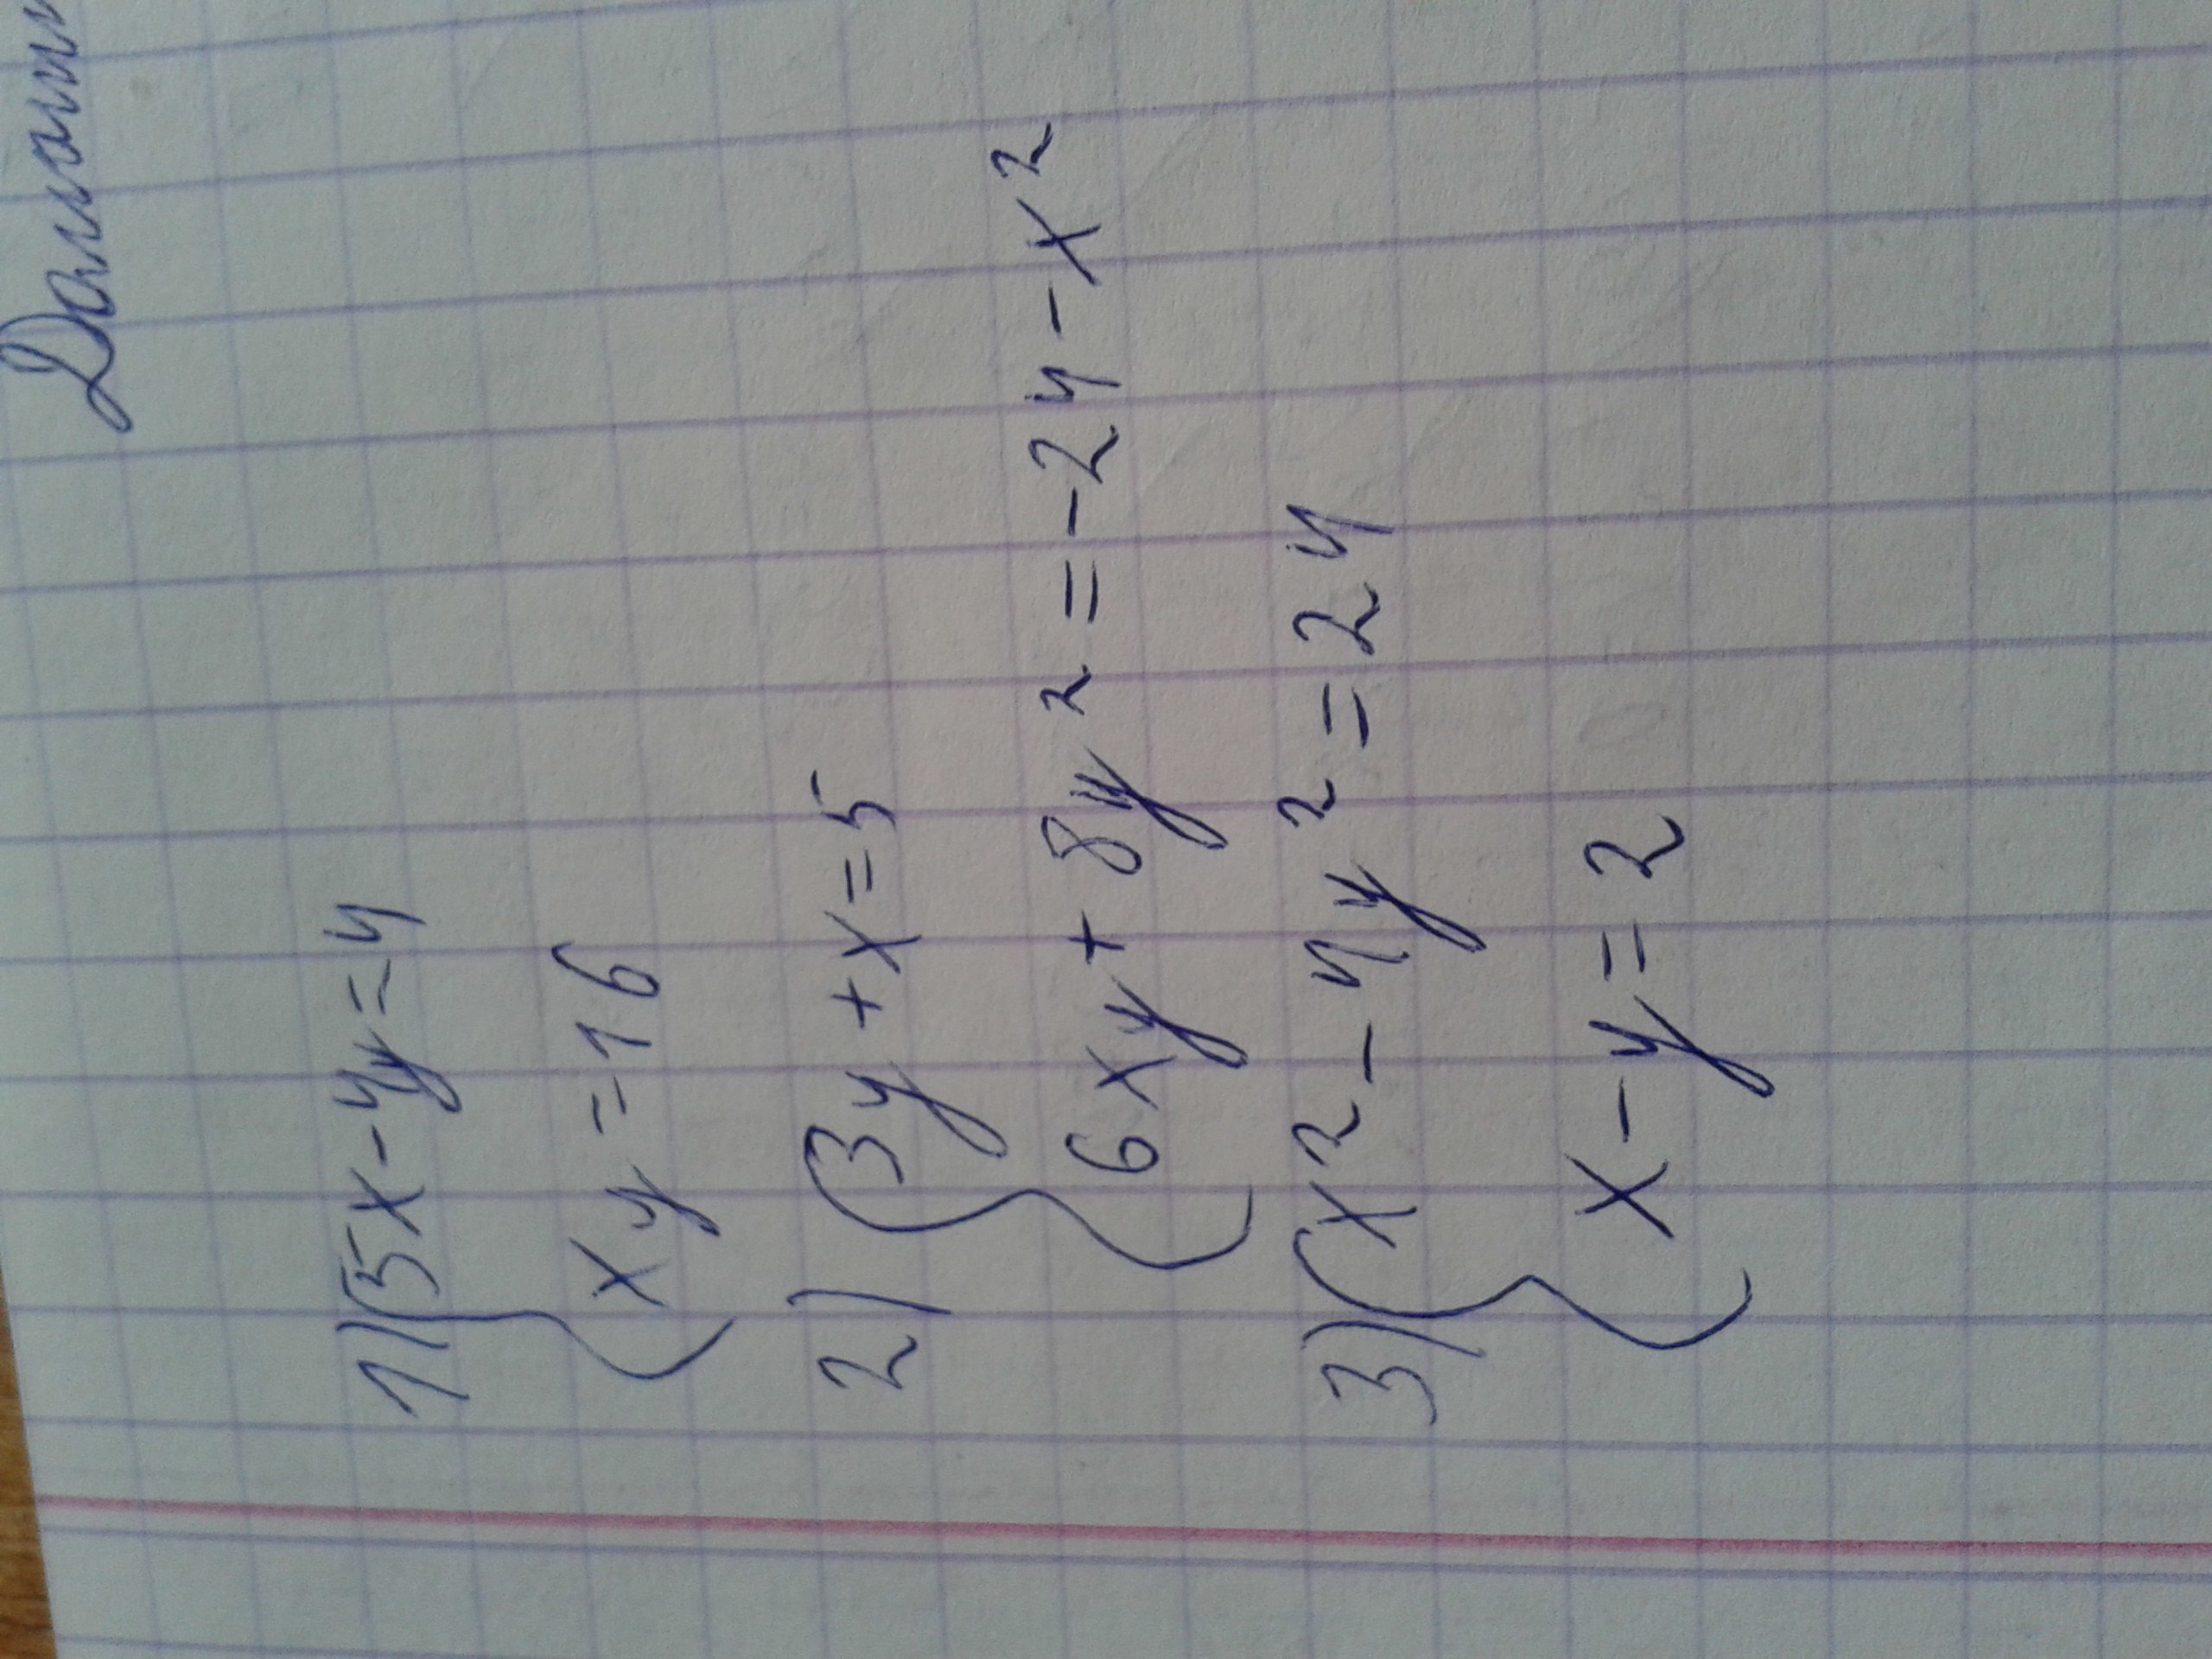 1) { 5x - 4y = 4
xy = 16
2) { 3y + x = 5
6xy + 8y² = -24 - x²
3) { x² - 4y² = 24
x - y = 2